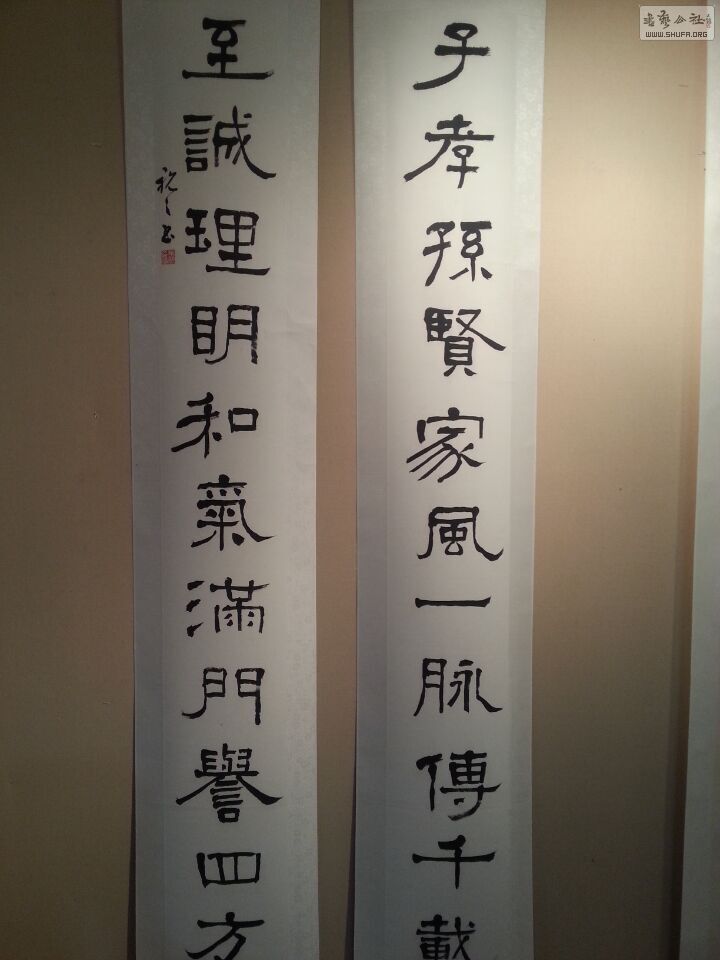 子孝孫賢家風一脉傳千載
至誠理明和氣滿門譽四方
書藝公社
WWW.SHUFA.ORG